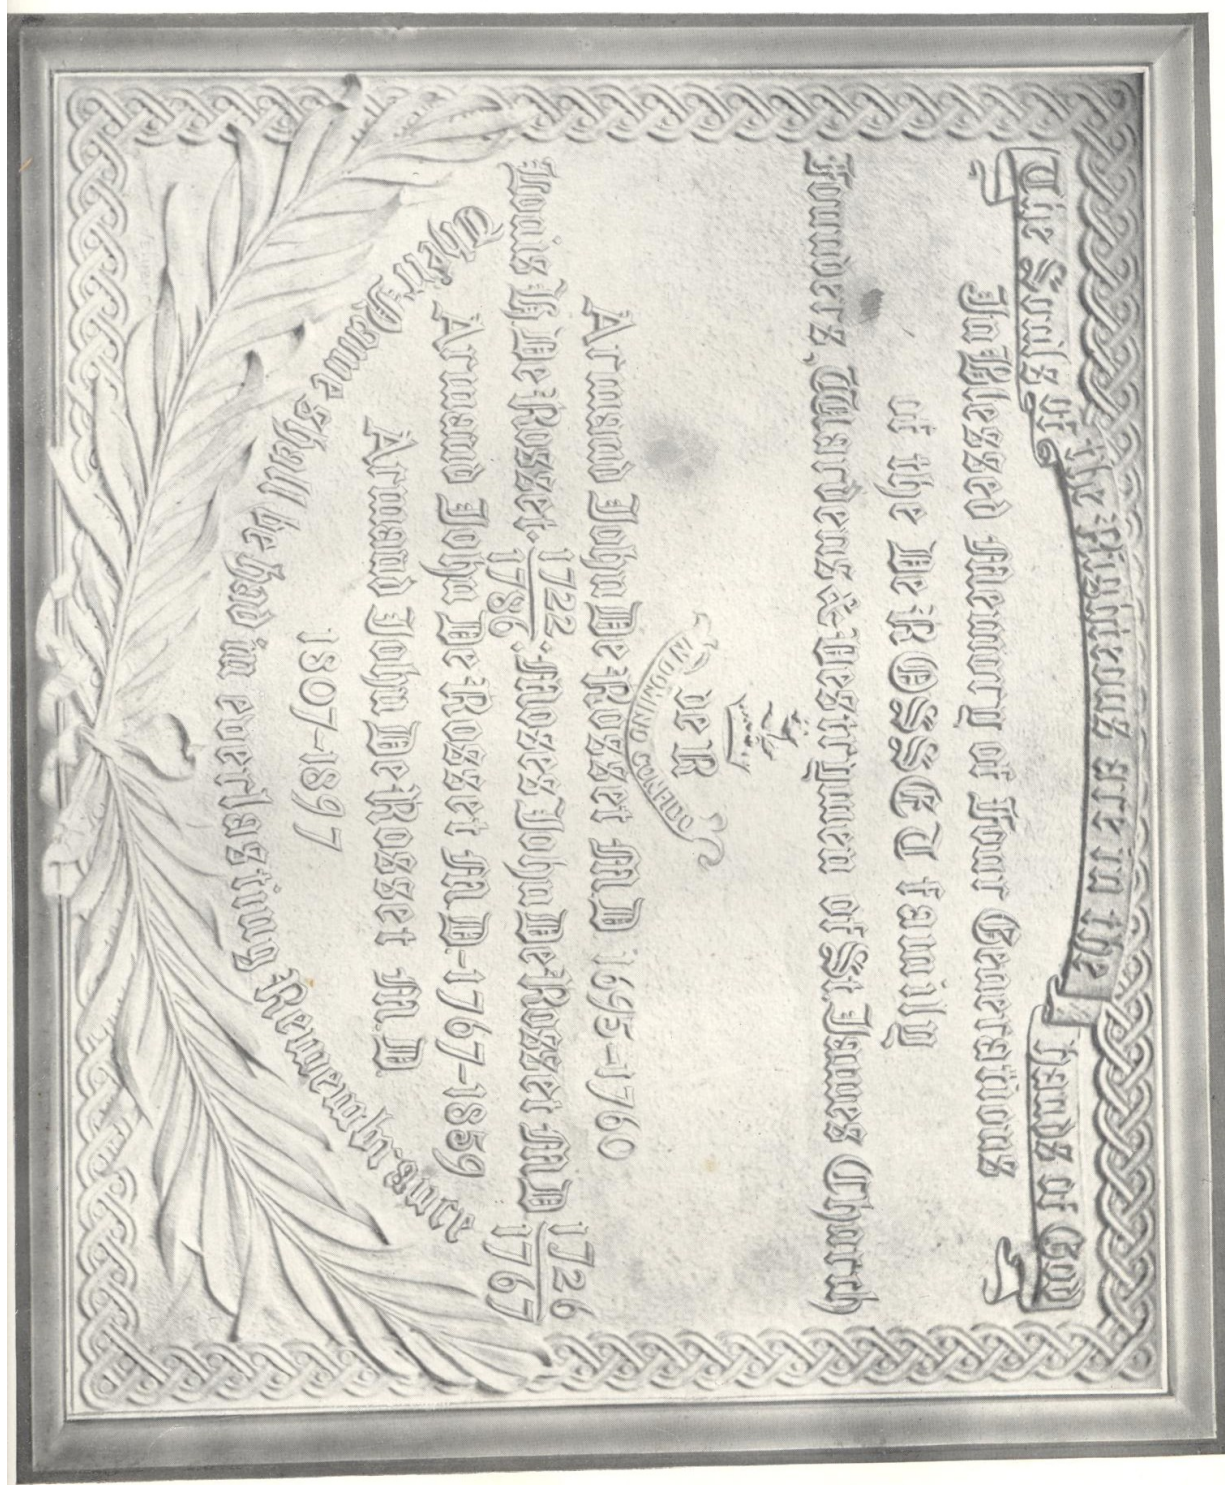 The Souls of the Righteous are in the hands of God
In Blessed Memory of Four Generations
of the De ROSSET family
Founders, Wardens & Vestrymen of St James Church
De R
IN DOMINO CONFIDO
Armand John De Rosset M.D 1695-1760
Louis H De Rosset. 1722/1786. Moses John De Rosset M.D 1726/1767
Armand John De Rosset M D-1767-1859
Armand John De Rosset M.D
1807-1897
Their Name shall be had in everlasting Remembrance